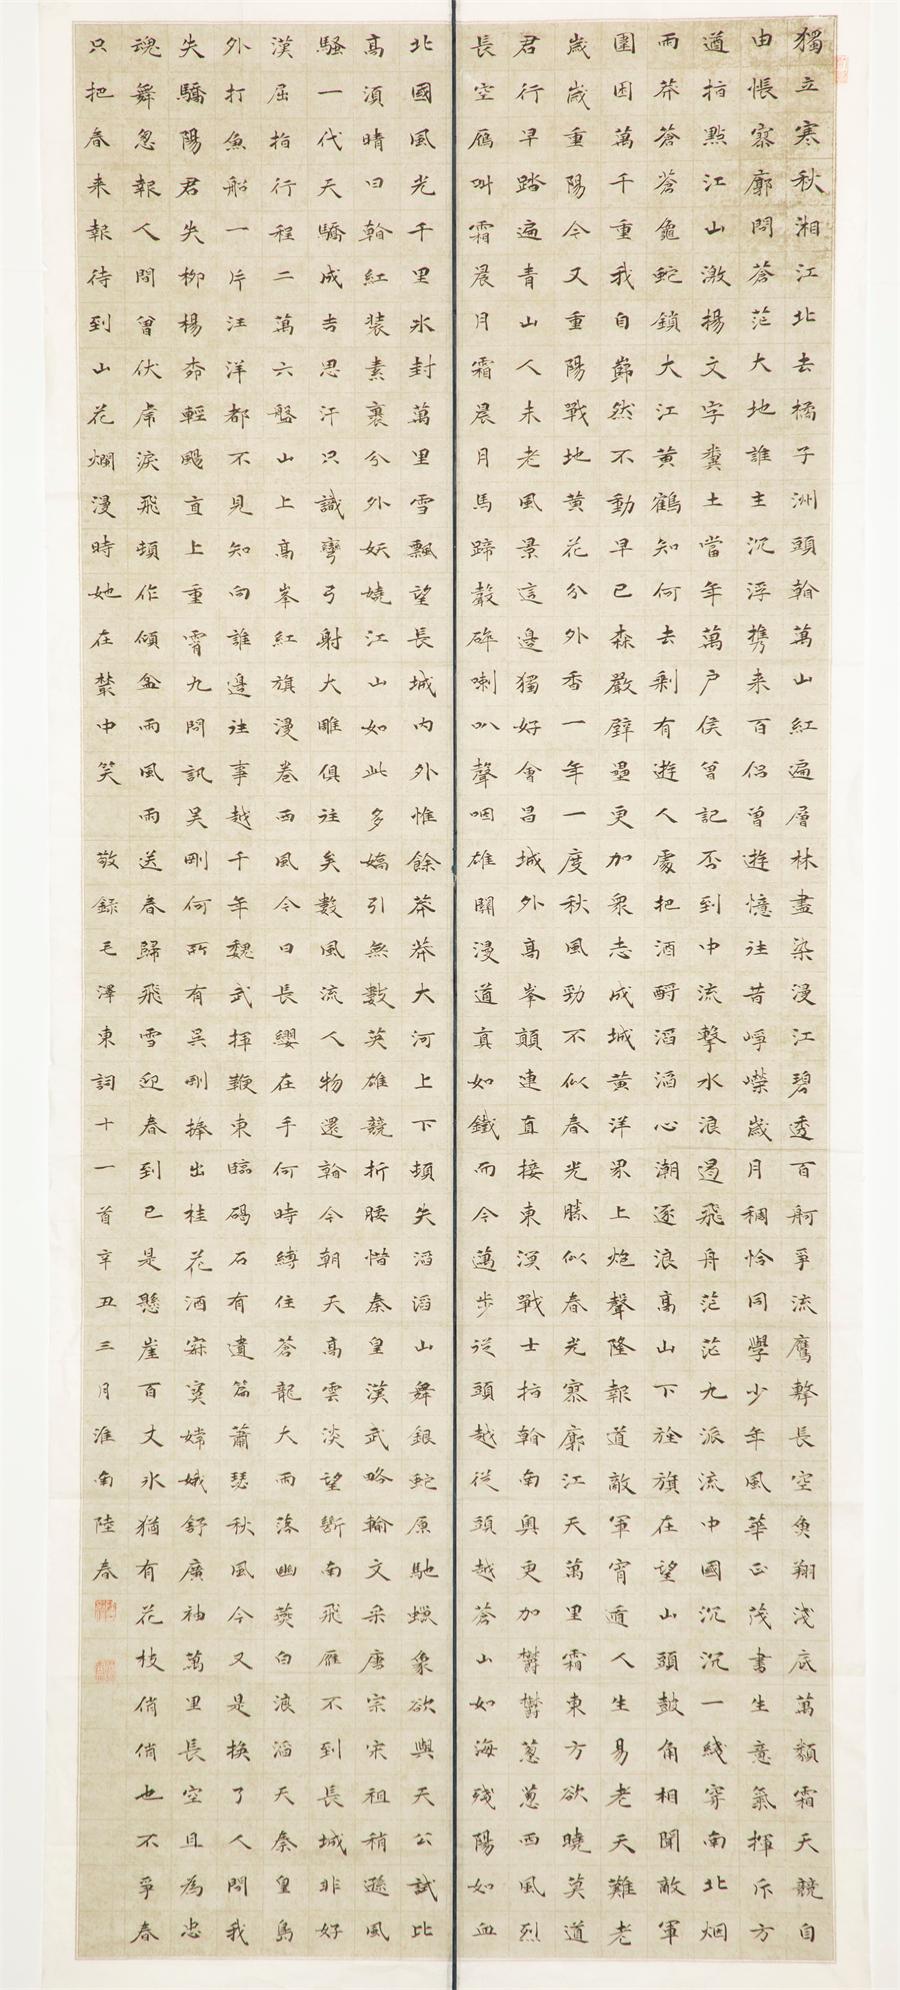 獨立寒秋湘江北去橘子洲頭看萬山紅遍層林盡染漫江碧透百舸爭流鷹擊長空魚翔淺底萬類霜天競自
由悵寥廓問蒼茫大地誰主沉浮攜來百侶曾遊憶往昔崢嶸歲月稠恰同學少年風華正茂書生意氣揮斥方
遒指點江山激揚文字糞土當年萬戶侯曾記否到中流擊水浪遏飛舟茫茫九派流中國沉沉一綫穿南北烟
雨莽蒼蒼龜蛇鎖大江黃鶴知何去剩有遊人處把酒酹滔滔心潮逐浪高山下旌旗在望山頭鼓角相聞敵軍
圍困萬千重我自巋然不動早已森嚴壁壘更加眾志成城黃洋界上炮聲隆報道敵軍宵遁人生易老天難老
歲歲重陽今又重陽戰地黃花分外香一年一度秋風勁不似春光勝似春光寥廓江天萬里霜東方欲曉莫道
君行早踏遍青山人未老風景這邊獨好會昌城外高峯顛連直接東溟戰士指看南粵更加鬱鬱蔥蔥西風烈
長空雁叫霜晨月霜晨月馬蹄聲碎喇叭聲咽雄關漫道真如鐵而今邁步從頭越從頭越蒼山如海殘陽如血
北國風光千里冰封萬里雪飄望長城內外惟餘莽莽大河上下頓失滔滔山舞銀蛇原馳蠟象欲與天公試比
高須晴日看紅裝素裹分外妖嬈江山如此多嬌引無數英雄競折腰惜秦皇漢武略輸文采唐宗宋祖稍遜風
騷一代天驕成吉思汗只識彎弓射大雕俱往矣數風流人物還看今朝天高雲淡望斷南飛雁不到長城非好
漢屈指行程二萬六盤山上高峯紅旗漫卷西風今日長纓在手何時縛住蒼龍大雨落幽燕白浪滔天秦皇島
外打魚船一片汪洋都不見知向誰邊往事越千年魏武揮鞭東臨碣石有遺篇蕭瑟秋風今又是換了人間我
失驕陽君失柳楊柳輕颺直上重霄九問訊吳剛何所有吳剛捧出桂花酒寂寞嫦娥舒廣袖萬里長空且為忠
魂舞忽報人間曾伏虎淚飛頓作傾盆雨風雨送春歸飛雪迎春到已是懸崖百丈冰猶有花枝俏俏也不爭春
只把春來報待到山花爛漫時她在叢中笑 敬錄毛澤東詞十一首辛丑三月淮南陸春